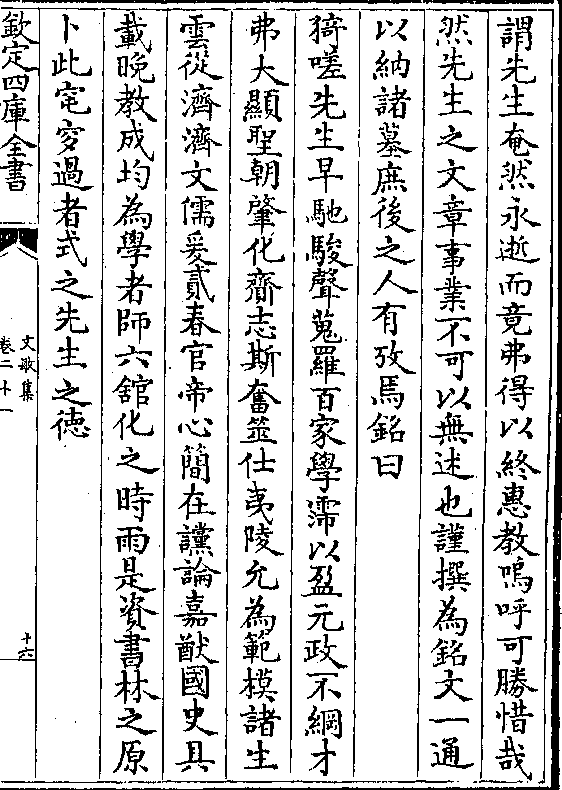 謂先生奄然永逝而竟弗得以終惠教嗚呼可勝惜哉
然先生之文章事業不可以無述也謹撰為銘文一通
以納諸墓庶後之人有攷焉銘曰
猗嗟先生早馳駿聲蒐羅百家學濡以盈元政不綱才
弗大顯聖朝肇化齎志斯奮筮仕夷陵允為範模諸生
雲從濟濟文儒爰貳春官帝心簡在讜論嘉猷國史具
載晚教成均為學者師六舘化之時雨是資書林之原
卜此窀穸過者式之先生之徳
欽定四庫全書
文敏集
卷二十一
十六